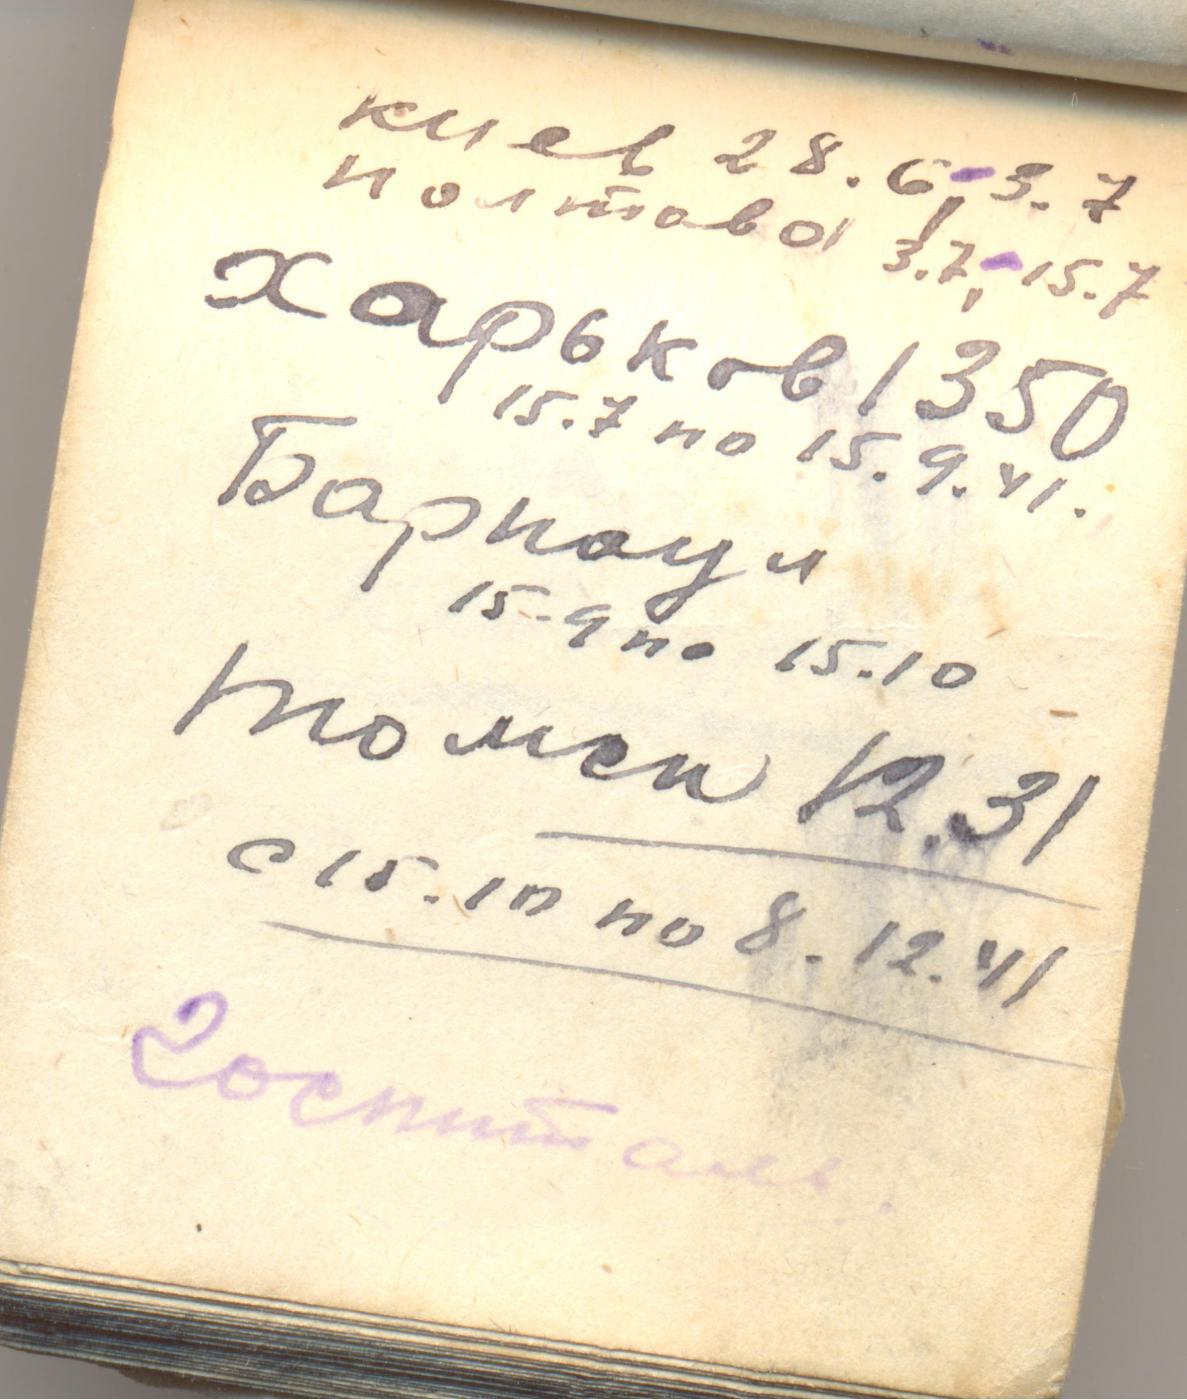 Киев 28.6-3.7
Полтава 3.7-15.7
Харьков 1350
15.7 по 15.9.41.
Барнаул
15-9 по 15.10
1231
с 15.10 по 8.12.41
Госпиталь.